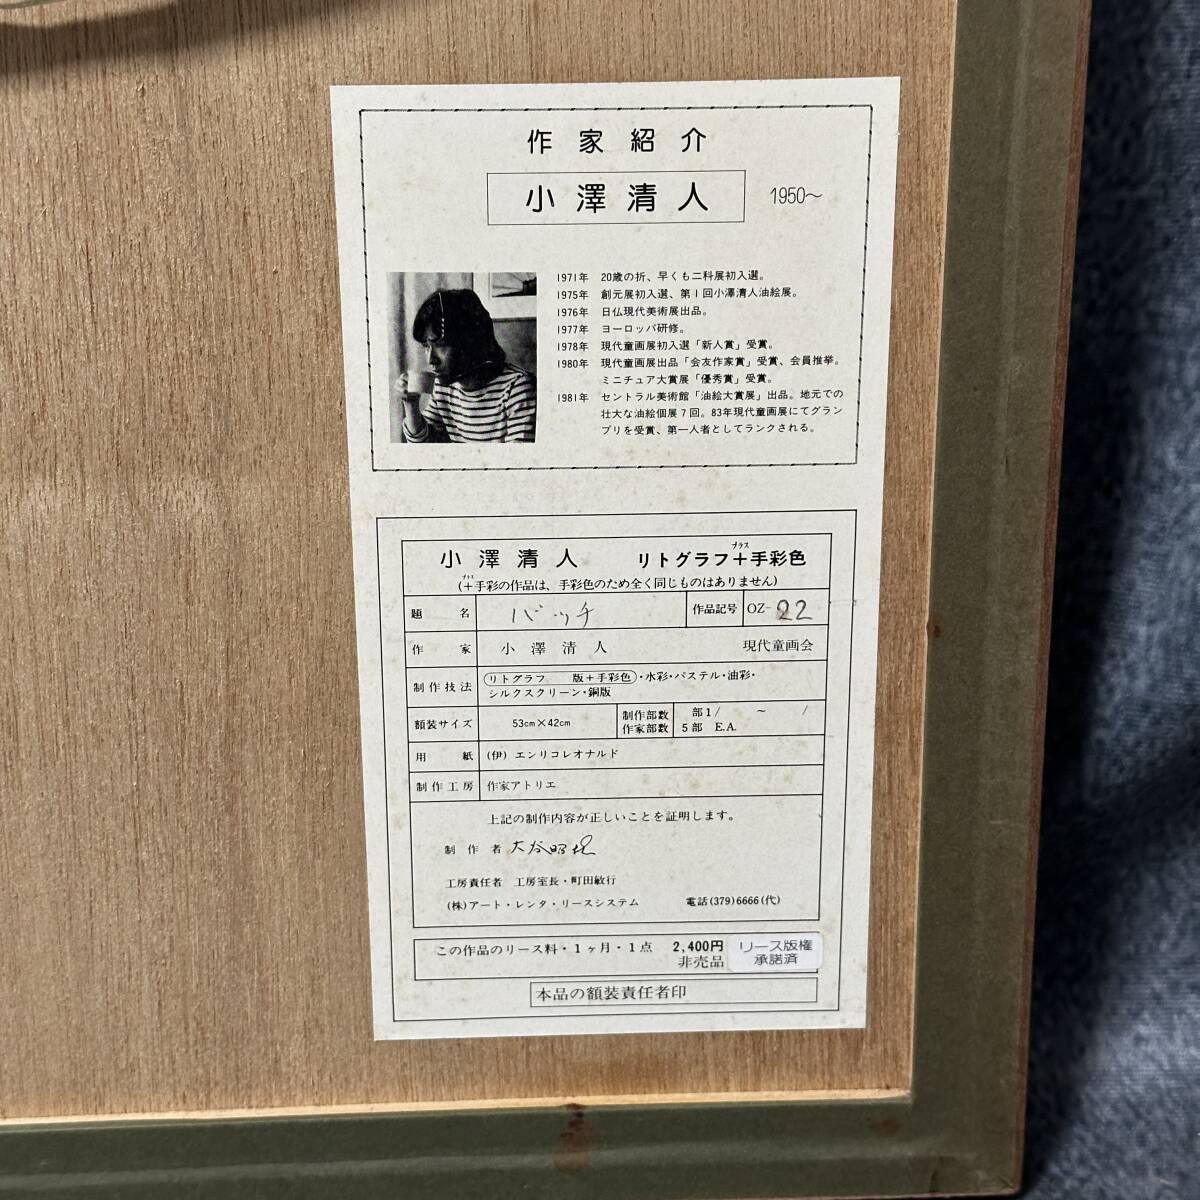 作家紹介
小澤清人 1950〜
1971年 20歳の折、早くも二科展初入選。
1975年 創元展初入選、第1回小澤清人油絵展。
1976年 日仏現代美術展出品。
1977年 ヨーロッパ研修。
1978年 現代童画展初入選「新人賞」受賞。
1980年 現代童画展出品「会友作家賞」受賞、会員推挙。
ミニチュア大賞展「優秀賞」受賞。
1981年 セントラル美術館「油絵大賞展」出品。地元での
壮大な油絵個展7回。83年現代童画展にてグラン
プリを受賞、第一人者としてランクされる。
小澤清人 リトグラフ+手彩色
プラス
(+手彩の作品は、手彩色のため全く同じものはありません)
プラス
題名 バッチ 作品記号 OZ-22
作家 小澤清人 現代童画会
制作技法 リトグラフ 版+手彩色・水彩・パステル・油彩・
シルクスクリーン・銅版
額装サイズ 53cm×42cm 制作部数 部1/ 〜 /
作家部数 5部 E.A.
用紙 (伊) エンリコレオナルド
制作工房 作家アトリエ
上記の制作内容が正しいことを証明します。
制作者 大谷昭
工房責任者 工房室長・町田敏行
(株)アート・レンタ・リースシステム 電話(379)6666(代)
この作品のリース料・1ヶ月・1点 2,400円
非売品
リース版権
承諾済
本品の額装責任者印